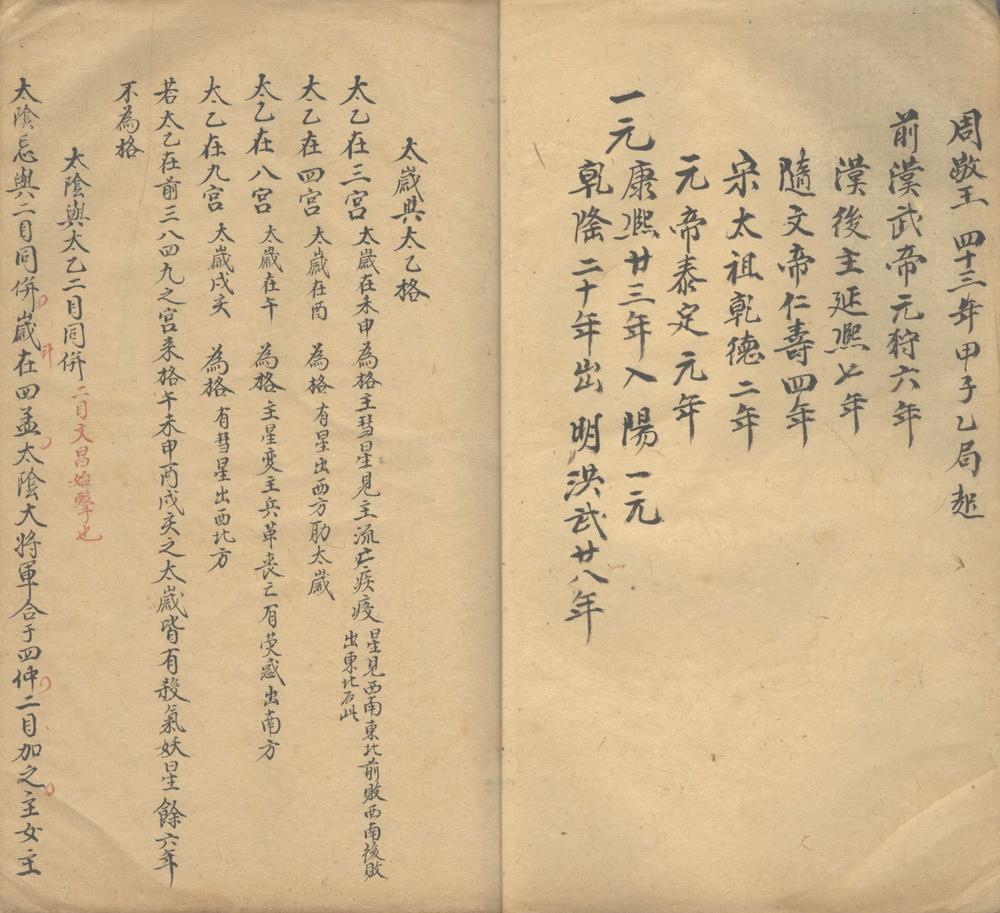 周敬王四十三年甲子乙局起
前漢武帝元狩六年
漢後主延熈七年
隨文帝仁壽四年
宋太祖乾德二年
元帝泰定元年
一元
康熈廿三年入陽一元
乾隆二十年出明洪武廿八年
太歲與太乙格
太乙在三宮太歲在未申為格主彗星見主流亡疾疫星見西南東北前敗西南後敗出東北石此
太乙在四宮太歲在酉為格有星出西方肋太歲
太乙在八宮太歲在午為格主星变主兵革丧亡有熒惑出南方
太乙在九宮太歲戌亥為格有彗星出西北方
若太乙在前三八四九之宮来格午未申酉戌亥之太歲皆有殺氣妖星餘六年
不為格
太陰與太乙二目同併二目文昌始擊也
太陰忌與二目同併歲在四孟太陰大將軍合于四仲二目加之主女主